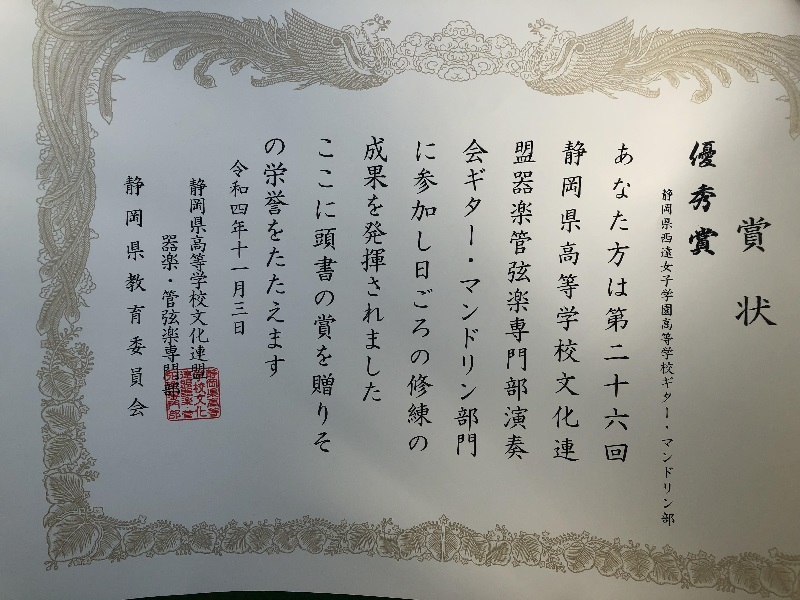 賞状
優秀賞
静岡県西遠女子学園高等学校ギター・マンドリン部
あなた方は第二十六回
静岡県高等学校文化連
盟器楽管弦楽専門部演奏
会ギター・マンドリン部門
に参加し日ごろの修練の
成果を発揮されました
ここに頭書の賞を贈りそ
の栄誉をたたえます
令和四年十一月三日
静岡県高等学校文化連盟
器楽・管弦楽専門部
静岡県教育委員会